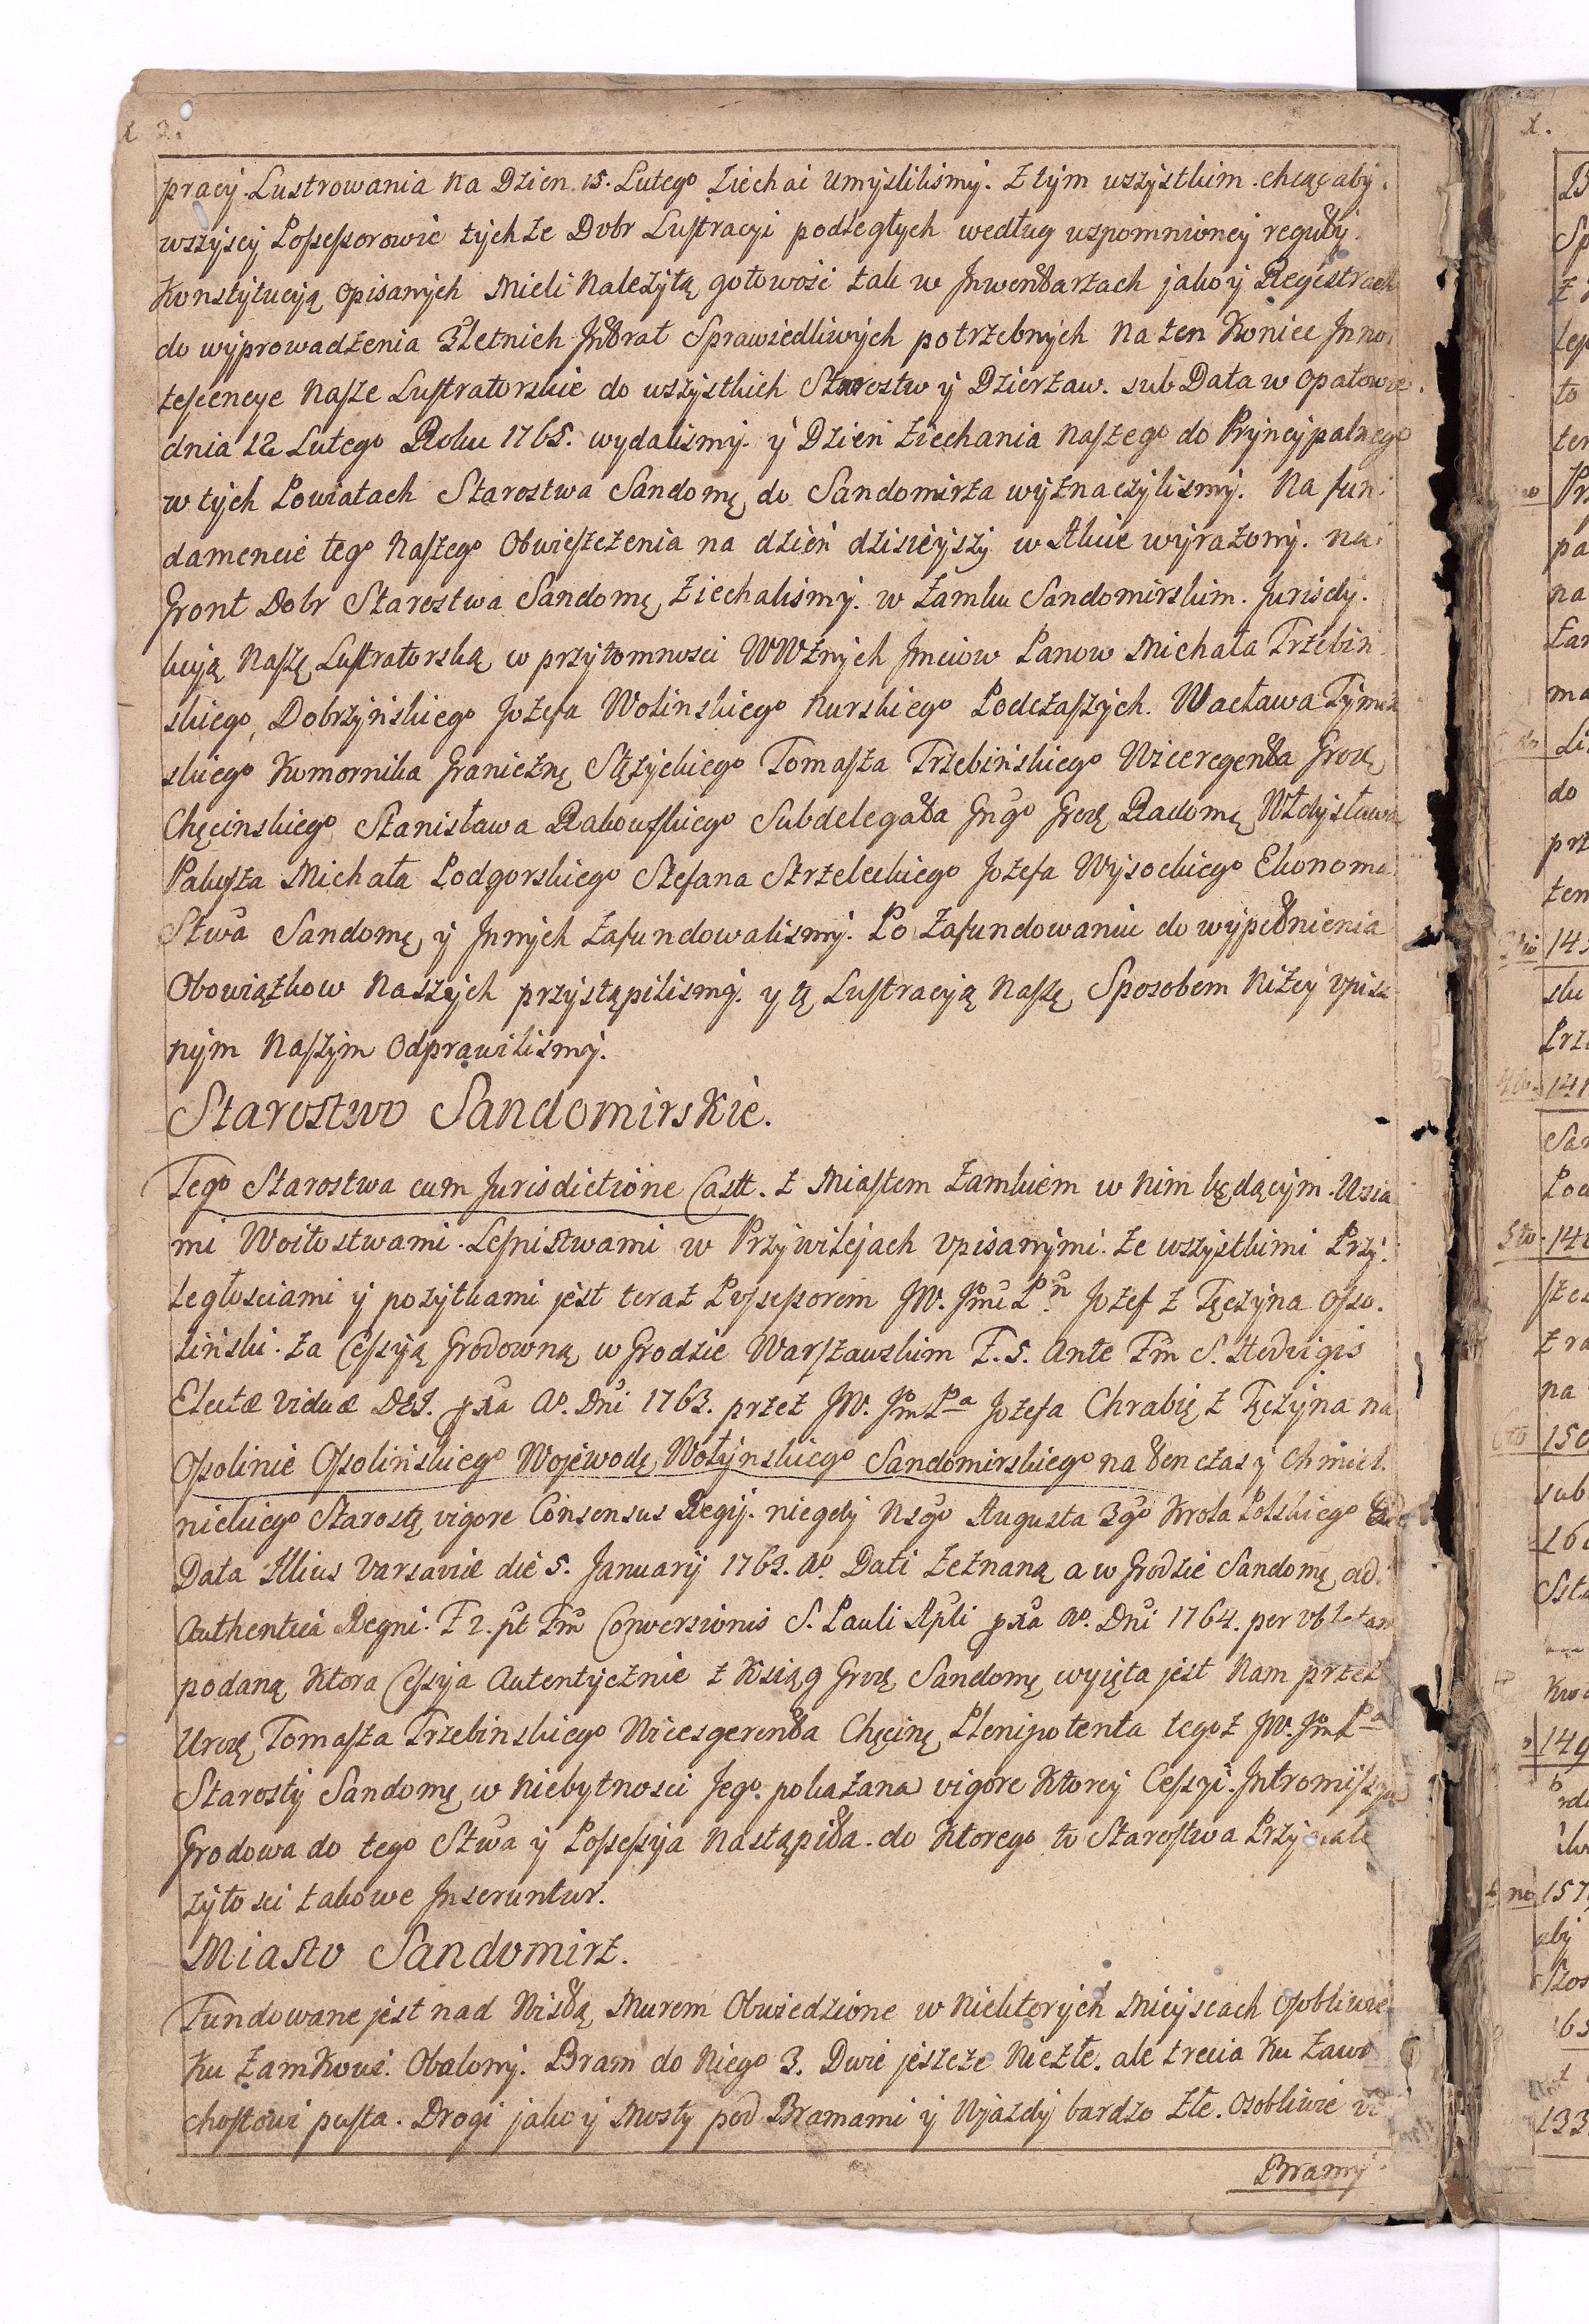 2.
pracy Lustrowania na Dzien 15. Lutego ziechai umyslilismy. z tym wszystkim chcąc aby
wszyscy Possessorowie tychze Dobr Lustracyi podległych według wspomnioney reguły
Konstytucyją opisanych mieli nalezytą gotowość tak w Inwentarzach jako y Regestrach
do wyprowadzenia 3letnich Intrat Sprawiedliwych potrzebnych na ten Koniec Inno,
tescencye nasze Lustratorskie do wszystkich Starostw y Dzierzaw. sub Data w Opatowie
dnia 12 Lutego Roku 1765. wydalismy. y Dzień ziechania naszego do Pryncypalnego
w tych Powiatach Starostwa Sandomę do Sandomirza wyznaczylismy. Na fun:
damencie tego naszego Obwieszczenia na dzień dzisieyszy w Akcie wyrażony. na:
Gront Dobr Starostwa Sandomę ziechaliśmy. w Zamku Sandomirskim. Jurisdy.
kcyją naszę Lustratorską w przytomnosci WWznych Jmciow Panow Michała Trzebin
skiego, Dobrzyńskiego Jozefa Wolinskiego Nurskiego Podczaszych. Wacława
skiego Komornika Granicznę Stężyckiego Tomasza Trzebińskiego Viceregenta Grodę
Chęcinskiego, Stanisława Rakowskiego Subdelegata Gngo Grodę Radomę Władysława
Michała Podgorskiego Stefana Strzeleckiego Jozefa Wysockiego Ekonoma
Stwa Sandomę y Innych zafundowalismy. Po zafundowaniu do wypełnienia
Obowiązkow naszych przystąpilismy. y tę Lustracyją naszę Sposobem niżey opisa
nym naszym odprawilismy.
Starostwo Sandomirskie.
Tego Starostwa cum Jurisdictione Castt. z Miastem Zamkiem w nim będącym. Wsia
mi Woitostwami. Lesnistwami w Przywilejach opisanymi. ze wszystkimi Przy:
ległosciami y pożytkami jest teraz Possessorem JW. Jmć Pn Jozef z Tęczyna Osso.
liński. za Cessyją Grodowną w Grodzie Warszawskim F. 5. Ante Fm S. Hedvigis
Electæ Viduæ pxa Ao. Dni 1763. przez JW. Jm Pa Jozefa Chrabię z Tęczyna na
Ossolinie Ossolińskiego Wojewodę Wołynskiego Sandomirskiego na ten czas y Chmiel.
nickiego Starostę vigore Consensus Regij. niegdy Nsgo Augusta 3go Krola Polskiego
Data Illius Varsaviæ die 5. Januarij 1763. Ao. Dati zeznaną a w Grodzie Sandomę ad:
Authentica Regni. F 2. pt Fm Conversionis S. Pauli Apli pxa Ao. Dni 1764. per oblatam
podaną Ktora Cessyja Autentycznie z Ksiąg Grodę Sandomę wyięta jest nam przez
Urodę Tomasza Trzebinskiego Vicesgerenta Chęcinę Plenipotenta tegoż JW. Jm Pa
Starosty Sandomę w niebytnosci Jego. pokazana vigore Ktorey Cessyi. Intromissya
Grodowa do tego Stwa y Possessyja nastąpiła. do Ktorego to Starostwa Przynale
żytosci takowe Inseruntur.
Miasto Sandomirz.
Fundowane jest nad Wisłą, Murem Obwiedzione w niektorych mieyscach osobliwie
Ku Zamkowi. Obalony. Bram do niego 3. Dwie jeszcze niezłe. ale trecia Ku Zawi
chostowi pusta. Drogi jako y Mosty pod Bramami y Wjazdy bardzo złe. osobliwie
Bramy